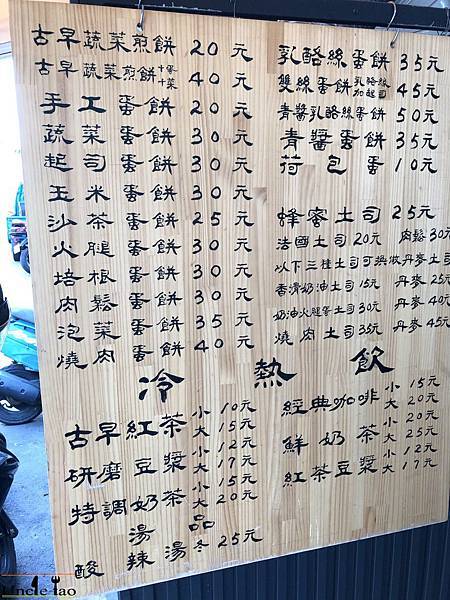 古早蔬菜煎餅 20元
古早蔬菜煎餅+蛋+菜 40元
手工蛋餅 20元
蔬菜蛋餅 30元
起司蛋餅 30元
玉米蛋餅 30元
沙茶蛋餅 25元
火腿蛋餅 30元
培根蛋餅 30元
肉鬆蛋餅 30元
泡菜蛋餅 35元
燒肉蛋餅 40元
乳酪絲蛋餅 35元
雙絲蛋餅 乳酪絲加起司 45元
青醬乳酪絲蛋餅 50元
青醬蛋餅 35元
荷包蛋 10元
蜂蜜土司 25元
法國土司 20元 肉鬆 30元
以下三種土司可換做丹麥土司
香滑奶油土司 15元 丹麥 25元
奶油火腿蛋土司 30元 丹麥 40元
燒肉土司 35元 丹麥 45元
冷熱飲
古早紅茶 小 10元
大 15元
研磨豆漿 小 12元
大 17元
特調奶茶 小 15元
大 20元
湯品
酸辣湯 冬 25元
經典咖啡 小 15元
大 20元
鮮奶茶 小 20元
大 25元
紅茶豆漿 小 12元
大 17元
uncle tao